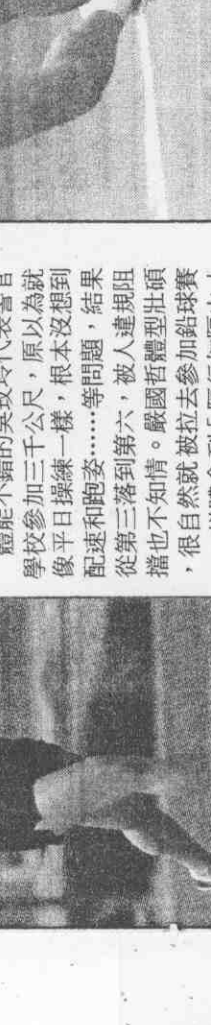 體能不錯的吳玫玲代表警官
學校參加三千公尺，原以為就
像平日操練一樣，根本沒想到
配速和跑姿……等問題，結果
從第三落到第六，被人違規阻
擋也不知情。嚴國哲體型壯碩
，很自然就被拉去參加鉛球賽